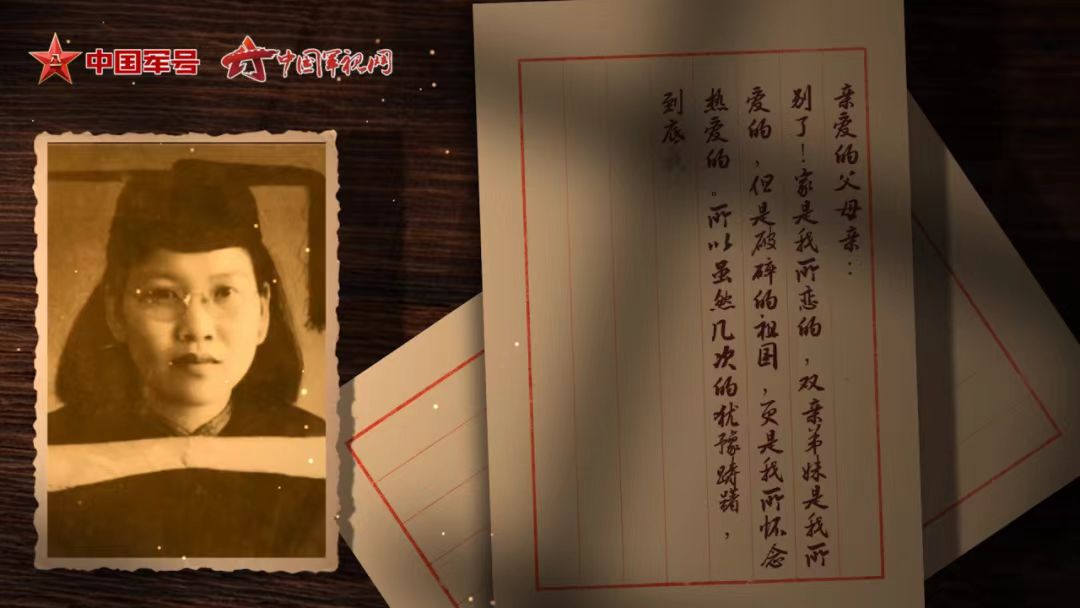 中国军号
中国军视网
亲爱的父母亲：
别了！家是我所恋的，双亲弟妹是我所
爱的，但是破碎的祖国，更是我所怀念
热爱的。所以虽然几次的犹豫踌躇，
到底